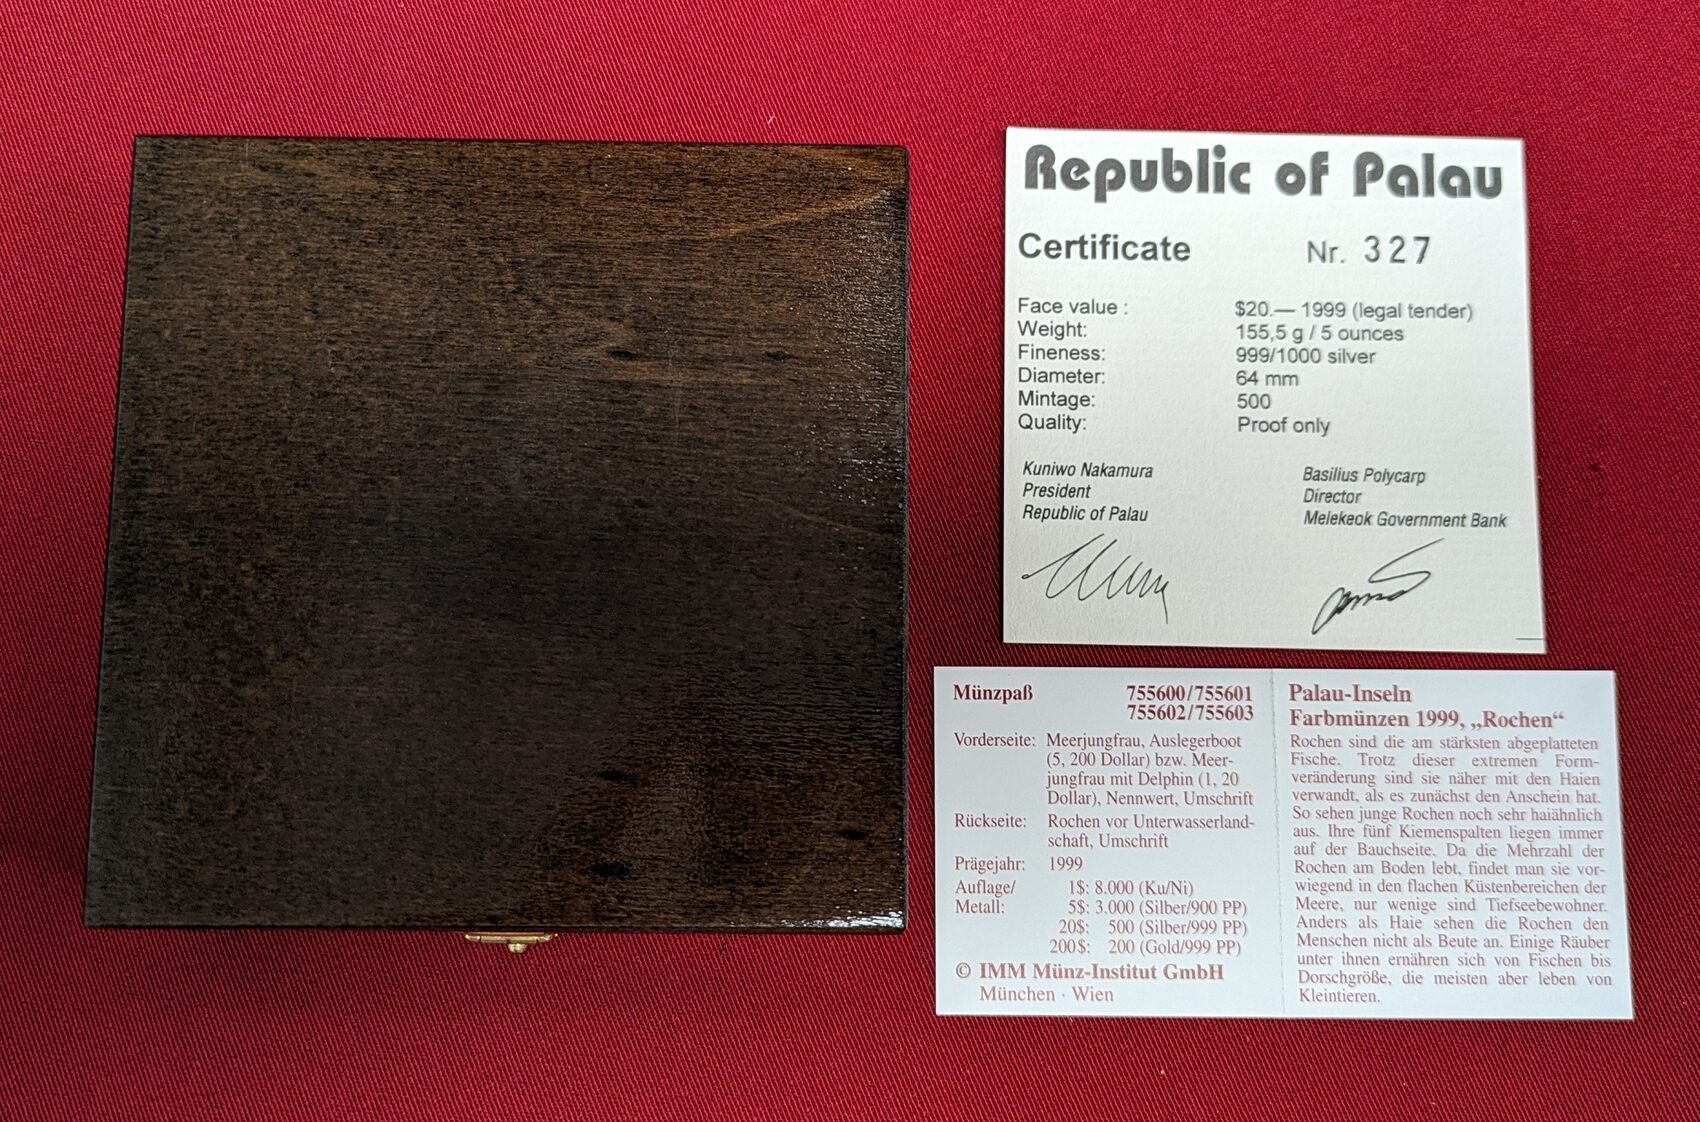 Republic of Palau
Certificate Nr. 327
Face value : $20.— 1999 (legal tender)
Weight: 155,5 g / 5 ounces
Fineness: 999/1000 silver
Diameter: 64 mm
Mintage: 500
Quality: Proof only
Kuniwo Nakamura
President
Republic of Palau
Basilius Polycarp
Director
Melekeok Government Bank
Münzpaß 755600/755601
755602/755603
Vorderseite: Meerjungfrau, Auslegerboot
(5, 200 Dollar) bzw. Meer-
jungfrau mit Delphin (1, 20
Dollar), Nennwert, Umschrift
Rückseite: Rochen vor Unterwasserland-
schaft, Umschrift
Prägejahr: 1999
Auflage/ 1$: 8.000 (Ku/Ni)
Metall: 5$: 3.000 (Silber/900 PP)
20$: 500 (Silber/999 PP)
200$: 200 (Gold/999 PP)
© IMM Münz-Institut GmbH
München · Wien
Palau-Inseln
Farbmünzen 1999, „Rochen“
Rochen sind die am stärksten abgeplatteten
Fische. Trotz dieser extremen Form-
veränderung sind sie näher mit den Haien
verwandt, als es zunächst den Anschein hat.
So sehen junge Rochen noch sehr haiähnlich
aus. Ihre fünf Kiemenspalten liegen immer
auf der Bauchseite. Da die Mehrzahl der
Rochen am Boden lebt, findet man sie vor-
wiegend in den flachen Küstenbereichen der
Meere, nur wenige sind Tiefseebewohner.
Anders als Haie sehen die Rochen den
Menschen nicht als Beute an. Einige Räuber
unter ihnen ernähren sich von Fischen bis
Dorschgröße, die meisten aber leben von
Kleintieren.